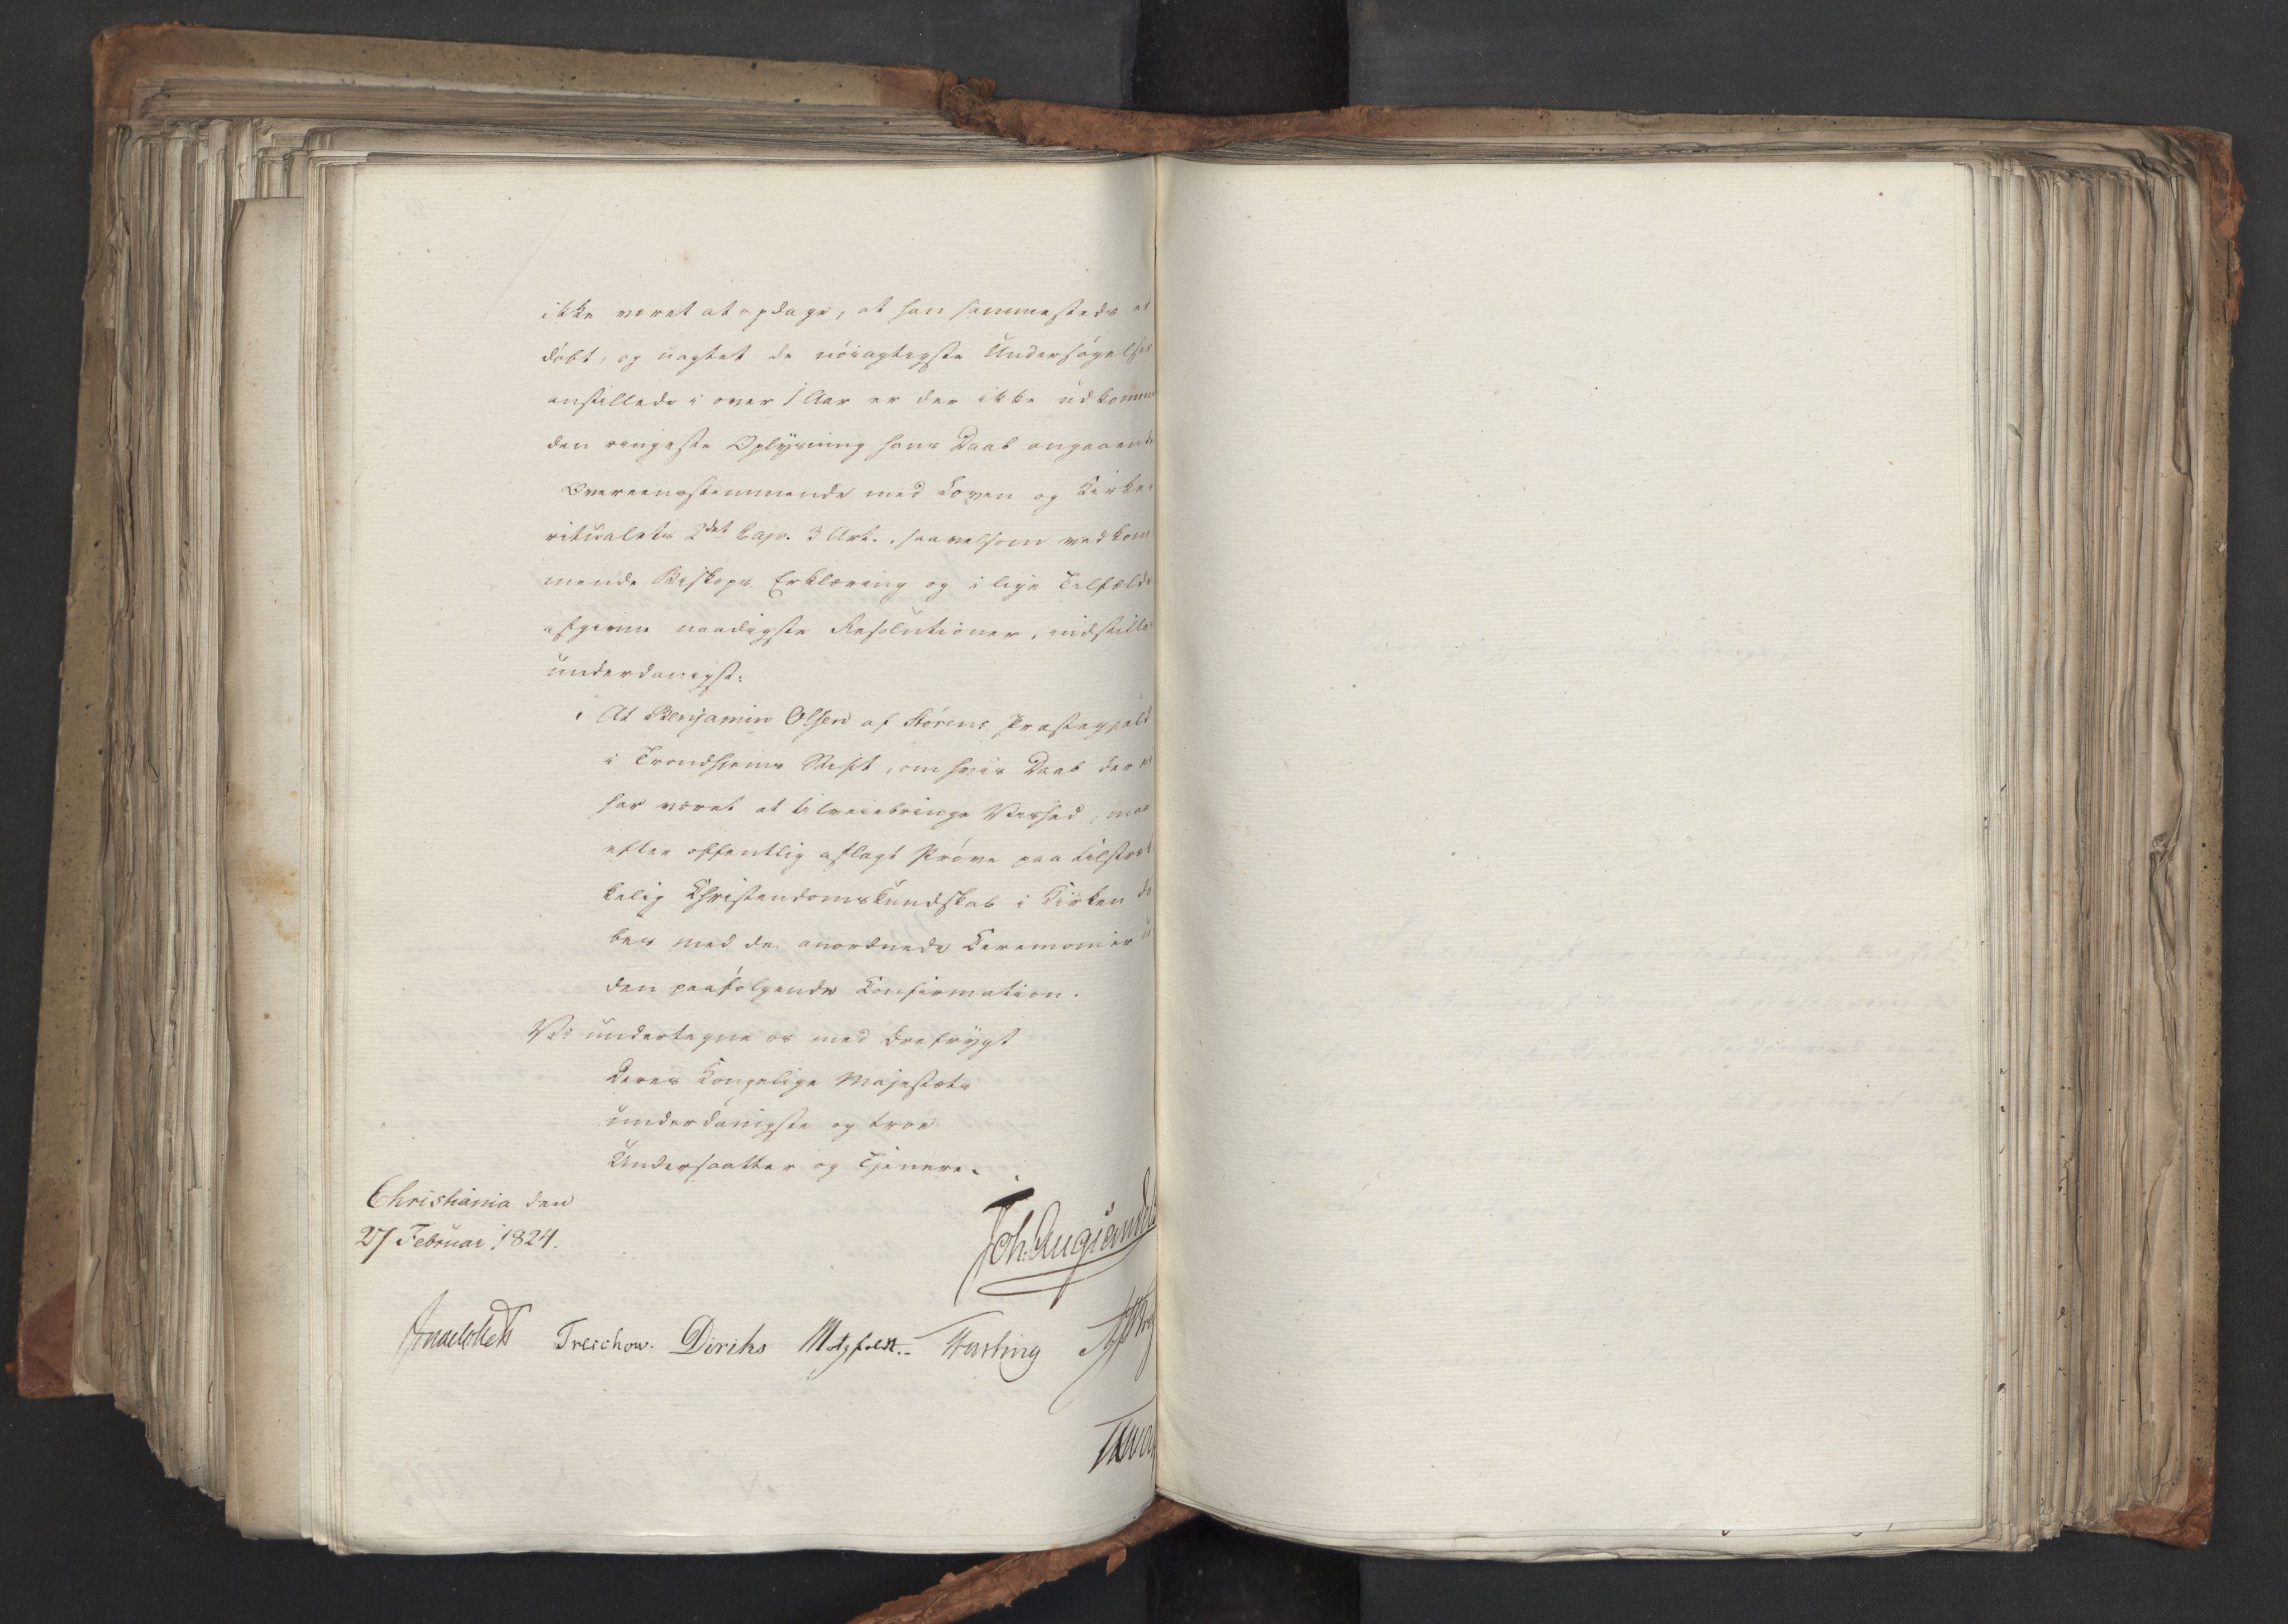 ikke været at opdage, at han sammesteds er
döbt, og uagtet de nöiagtigste Undersögelser
anstillede i over 1 Aar er der ikke udkomm
den ringeste Oplysning hans Daab angaaende
Overeensstemmende med Loven og Kirke-
ritualets 2det Cap. 3 Art., saavelsom vedkom
mende Biskops Erklæring og i lige Tilfælde
afgivne naadigste Resolutioner, indstilles
underdanigst:
At Benjamin Olsen af Störens Præstegjeld
i Trondhjems Stift, om hvis Daab der ei
har været at tilveiebringe Vished, maa
efter offentlig aflagt Pröve paa tilstræk
kelig Christendomskundskab i Kirken dö
bes med de anordnede Ceremonier
den paafölgende Confirmation.
Vi undertegne os med Ærefrygt
Deres Kongelige Majestæts
underdanigste og troe
Undersaatter og Tjenere.
Christiania den
27 Februar 1824.
Joh. Aug Sandels
Treschow. Diriks Motzfeldt. Fasting